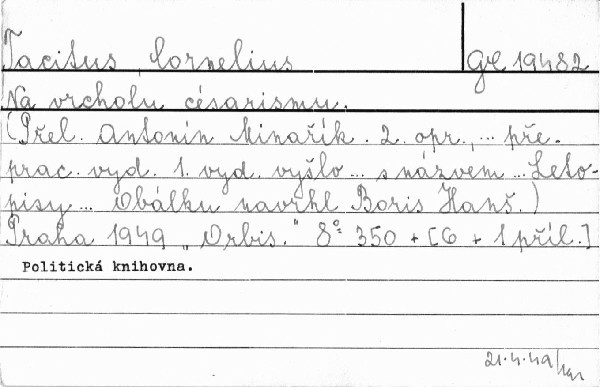 Tacitus Cornelius
Ge 19482
Na vrcholu césarismu.
(Přel. Antonín Minařík. 2. opr., ... pře-
prac. vyd. 1. vyd. vyšlo ... s názvem ... Leto-
pisy ... Obálku navrhl Boris Hanš.)
Praha 1949 „Orbis." 8° 350 + [6 + 1 příl.]
Politická knihovna.
21.4.49/